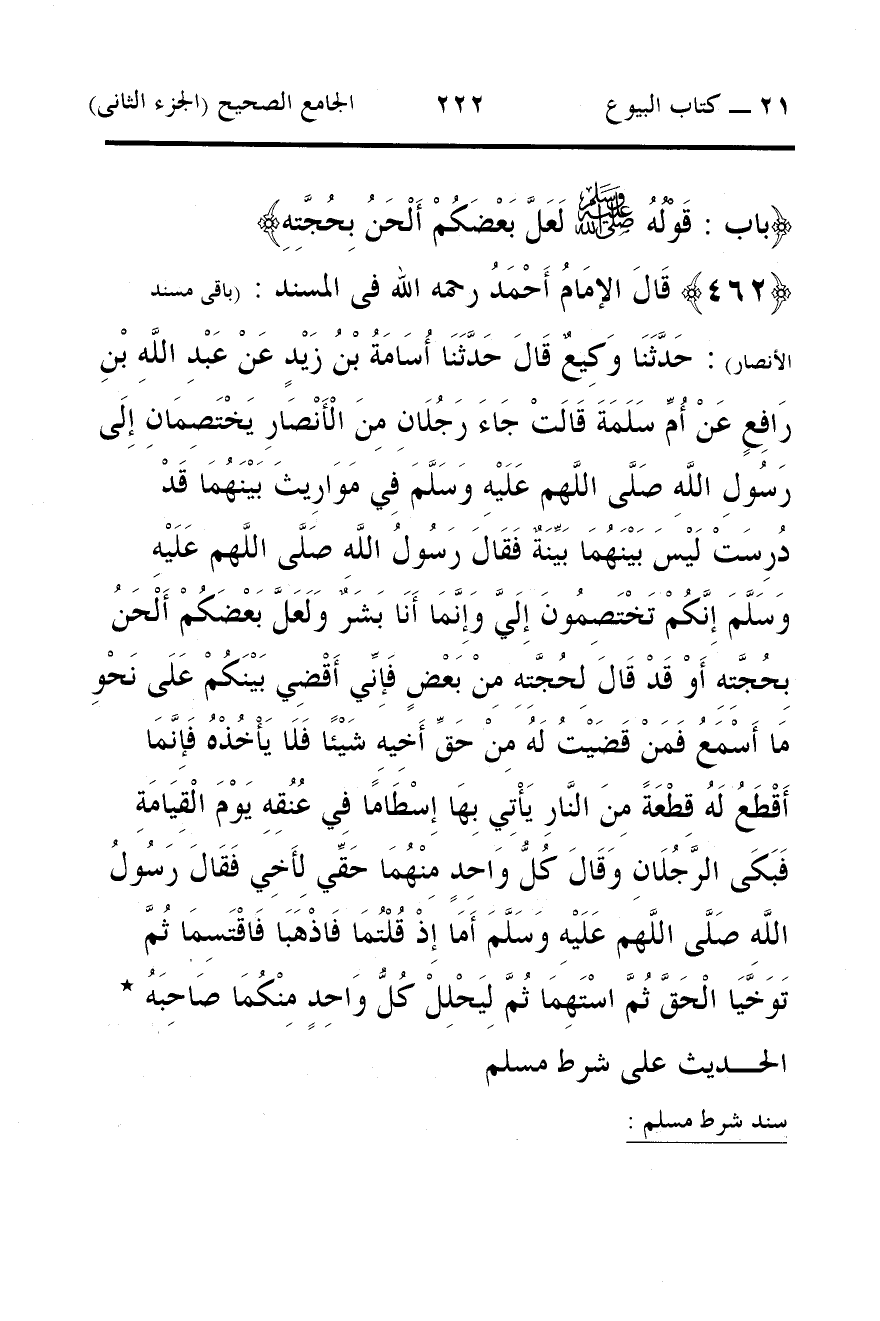 ٢١ ــ كتاب البيوع ٢٢٢ الجامع الصحيح (الجزء الثانى)
﴿باب : قَوْلُهُ ﷺ لَعَلَّ بَعْضَكُمْ أَلْحَنُ بِحُجَّتِهِ﴾
﴿٤٦٢﴾ قَالَ الإمَامُ أَحْمَدُ رحمه الله فى المسند : (باقى مسند
الأنصار) : حَدَّثَنَا وَكِيعٌ قَالَ حَدَّثَنَا أُسَامَةُ بْنُ زَيْدٍ عَنْ عَبْدِ اللَّهِ بْنِ
رَافِعٍ عَنْ أُمِّ سَلَمَةَ قَالَتْ جَاءَ رَجُلَانِ مِنَ الْأَنْصَارِ يَخْتَصِمَانِ إِلَى
رَسُولِ اللَّهِ صَلَّى اللَّهم عَلَيْهِ وَسَلَّمَ فِي مَوَارِيثَ بَيْنَهُمَا قَدْ
دُرِسَتْ لَيْسَ بَيْنَهُمَا بَيِّنَةٌ فَقَالَ رَسُولُ اللَّهِ صَلَّى اللَّهم عَلَيْهِ
وَسَلَّمَ إِنَّكُمْ تَخْتَصِمُونَ إِلَيَّ وَإِنَّمَا أَنَا بَشَرٌ وَلَعَلَّ بَعْضَكُمْ أَلْحَنُ
بِحُجَّتِهِ أَوْ قَدْ قَالَ لِحُجَّتِهِ مِنْ بَعْضٍ فَإِنِّي أَقْضِي بَيْنَكُمْ عَلَى نَحْوِ
مَا أَسْمَعُ فَمَنْ قَضَيْتُ لَهُ مِنْ حَقِّ أَخِيهِ شَيْئًا فَلَا يَأْخُذْهُ فَإِنَّمَا
أَقْطَعُ لَهُ قِطْعَةً مِنَ النَّارِ يَأْتِي بِهَا إِسْطَامًا فِي عُنُقِهِ يَوْمَ الْقِيَامَةِ
فَبَكَى الرَّجُلَانِ وَقَالَ كُلُّ وَاحِدٍ مِنْهُمَا حَقِّي لِأَخِي فَقَالَ رَسُولُ
اللَّهِ صَلَّى اللَّهم عَلَيْهِ وَسَلَّمَ أَمَا إِذْ قُلْتُمَا فَاذْهَبَا فَاقْتَسِمَا ثُمَّ
تَوَخَّيَا الْحَقَّ ثُمَّ اسْتَهِمَا ثُمَّ لِيَحْلِلْ كُلُّ وَاحِدٍ مِنْكُمَا صَاحِبَهُ *
الحـــديث على شرط مسلم
سند شرط مسلم :